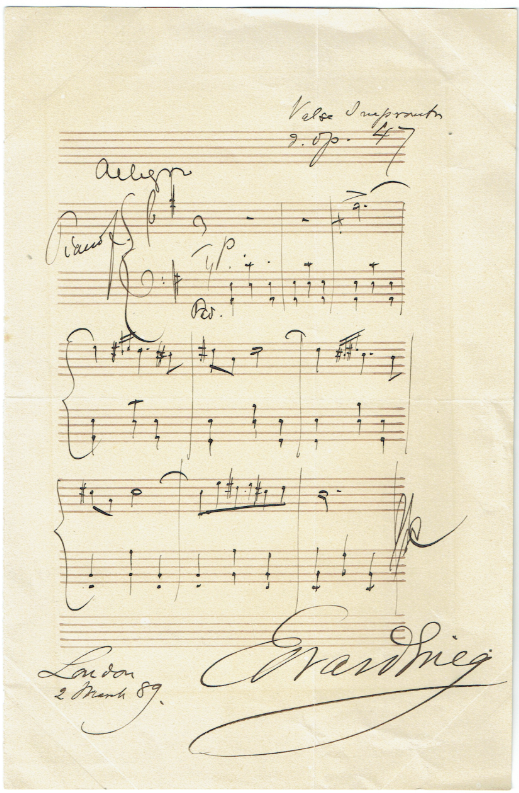 Valse Impromptu
a. op. 47
Allegro
Piano
pp.
Ped.
London
2 March 89.
Edvard Grieg